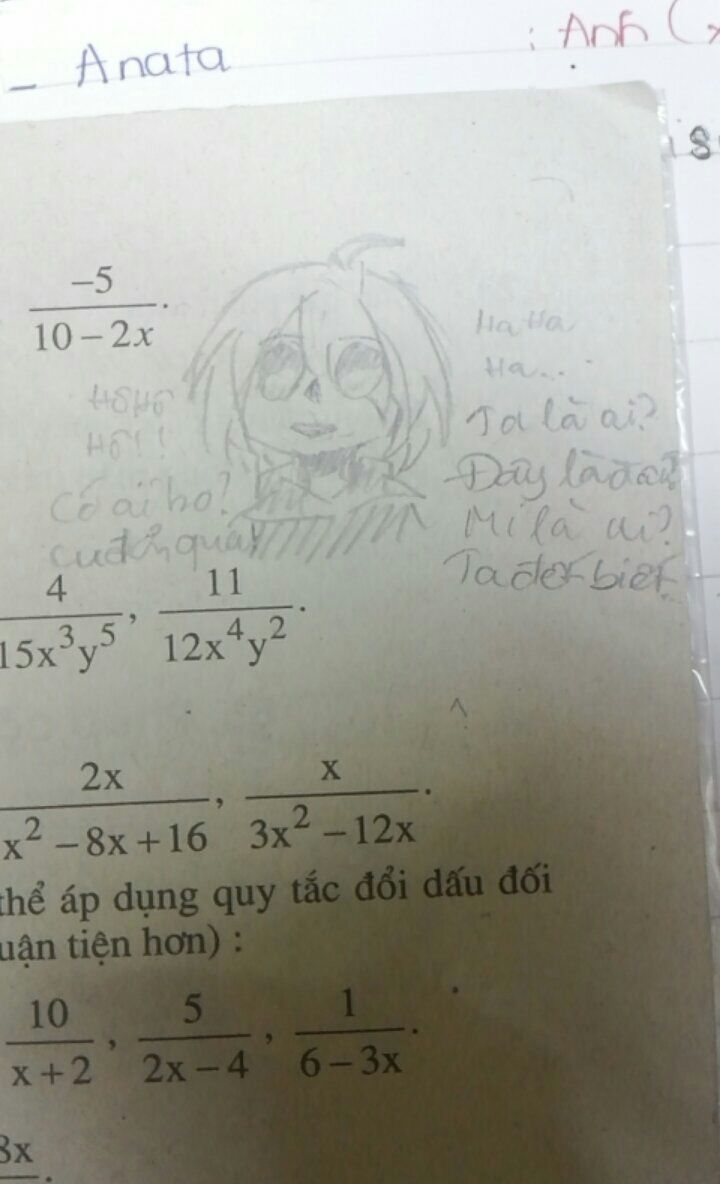 - Anata : Anh (
-5
10 - 2x .
Ha Ha
Ha...
Hô Hô
Hô!!
Ta là ai?
Đây là đâu?
Có ai ho?
Mi là ai?
quá!
Ta đếch biết
4/15x³y⁵, 11/12x⁴y².
2x/x² - 8x + 16, x/3x² - 12x.
thể áp dụng quy tắc đổi dấu đối
uận tiện hơn) :
10/x + 2, 5/2x - 4, 1/6 - 3x.
8x